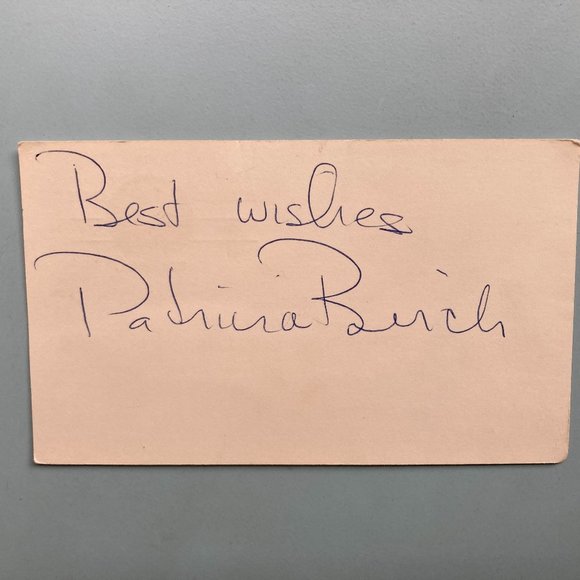 Best wishes
Patricia Birch